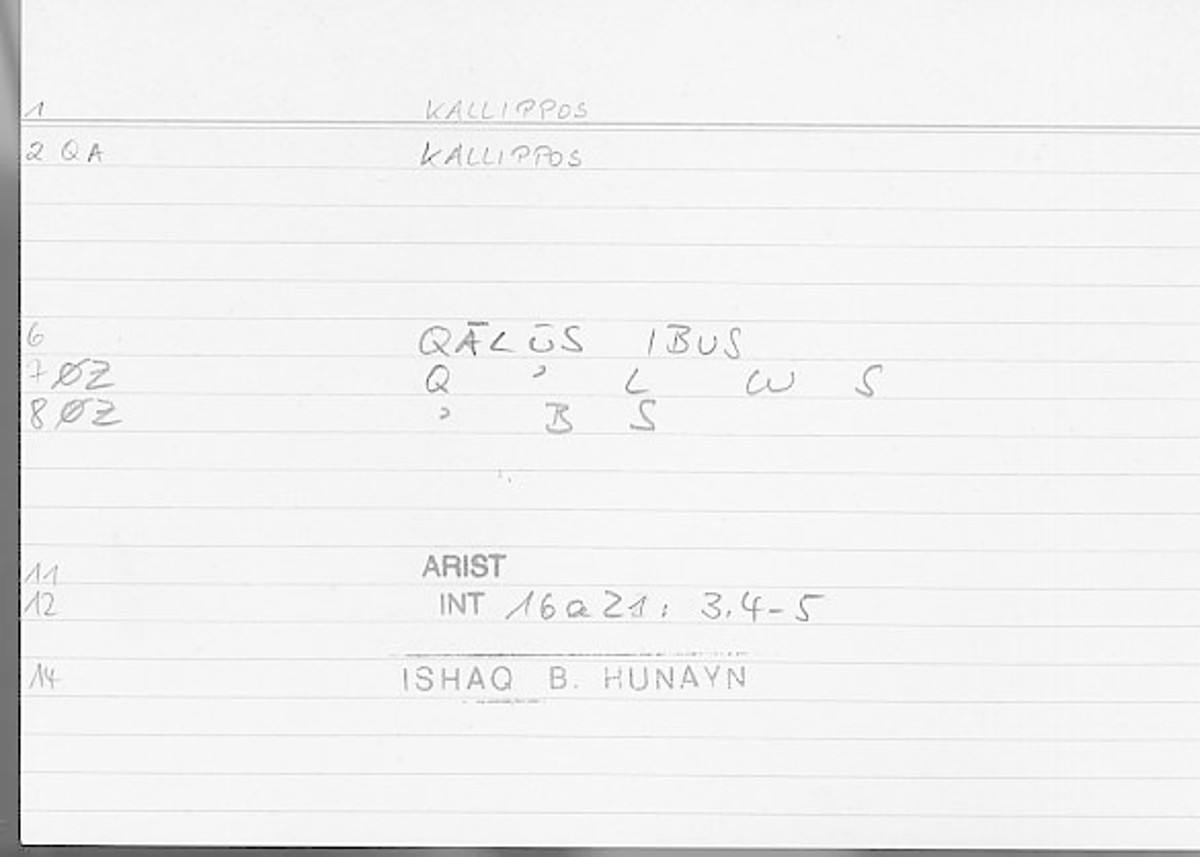 1 KALLIPPOS
2 QA KALLIPPOS
6 QĀLŪS IBUS
7 ØZ Q ʾ L W S
8 ØZ ʾ B S
11 ARIST
12 INT 16a21: 3.4-5
14 ISHAQ B. HUNAYN